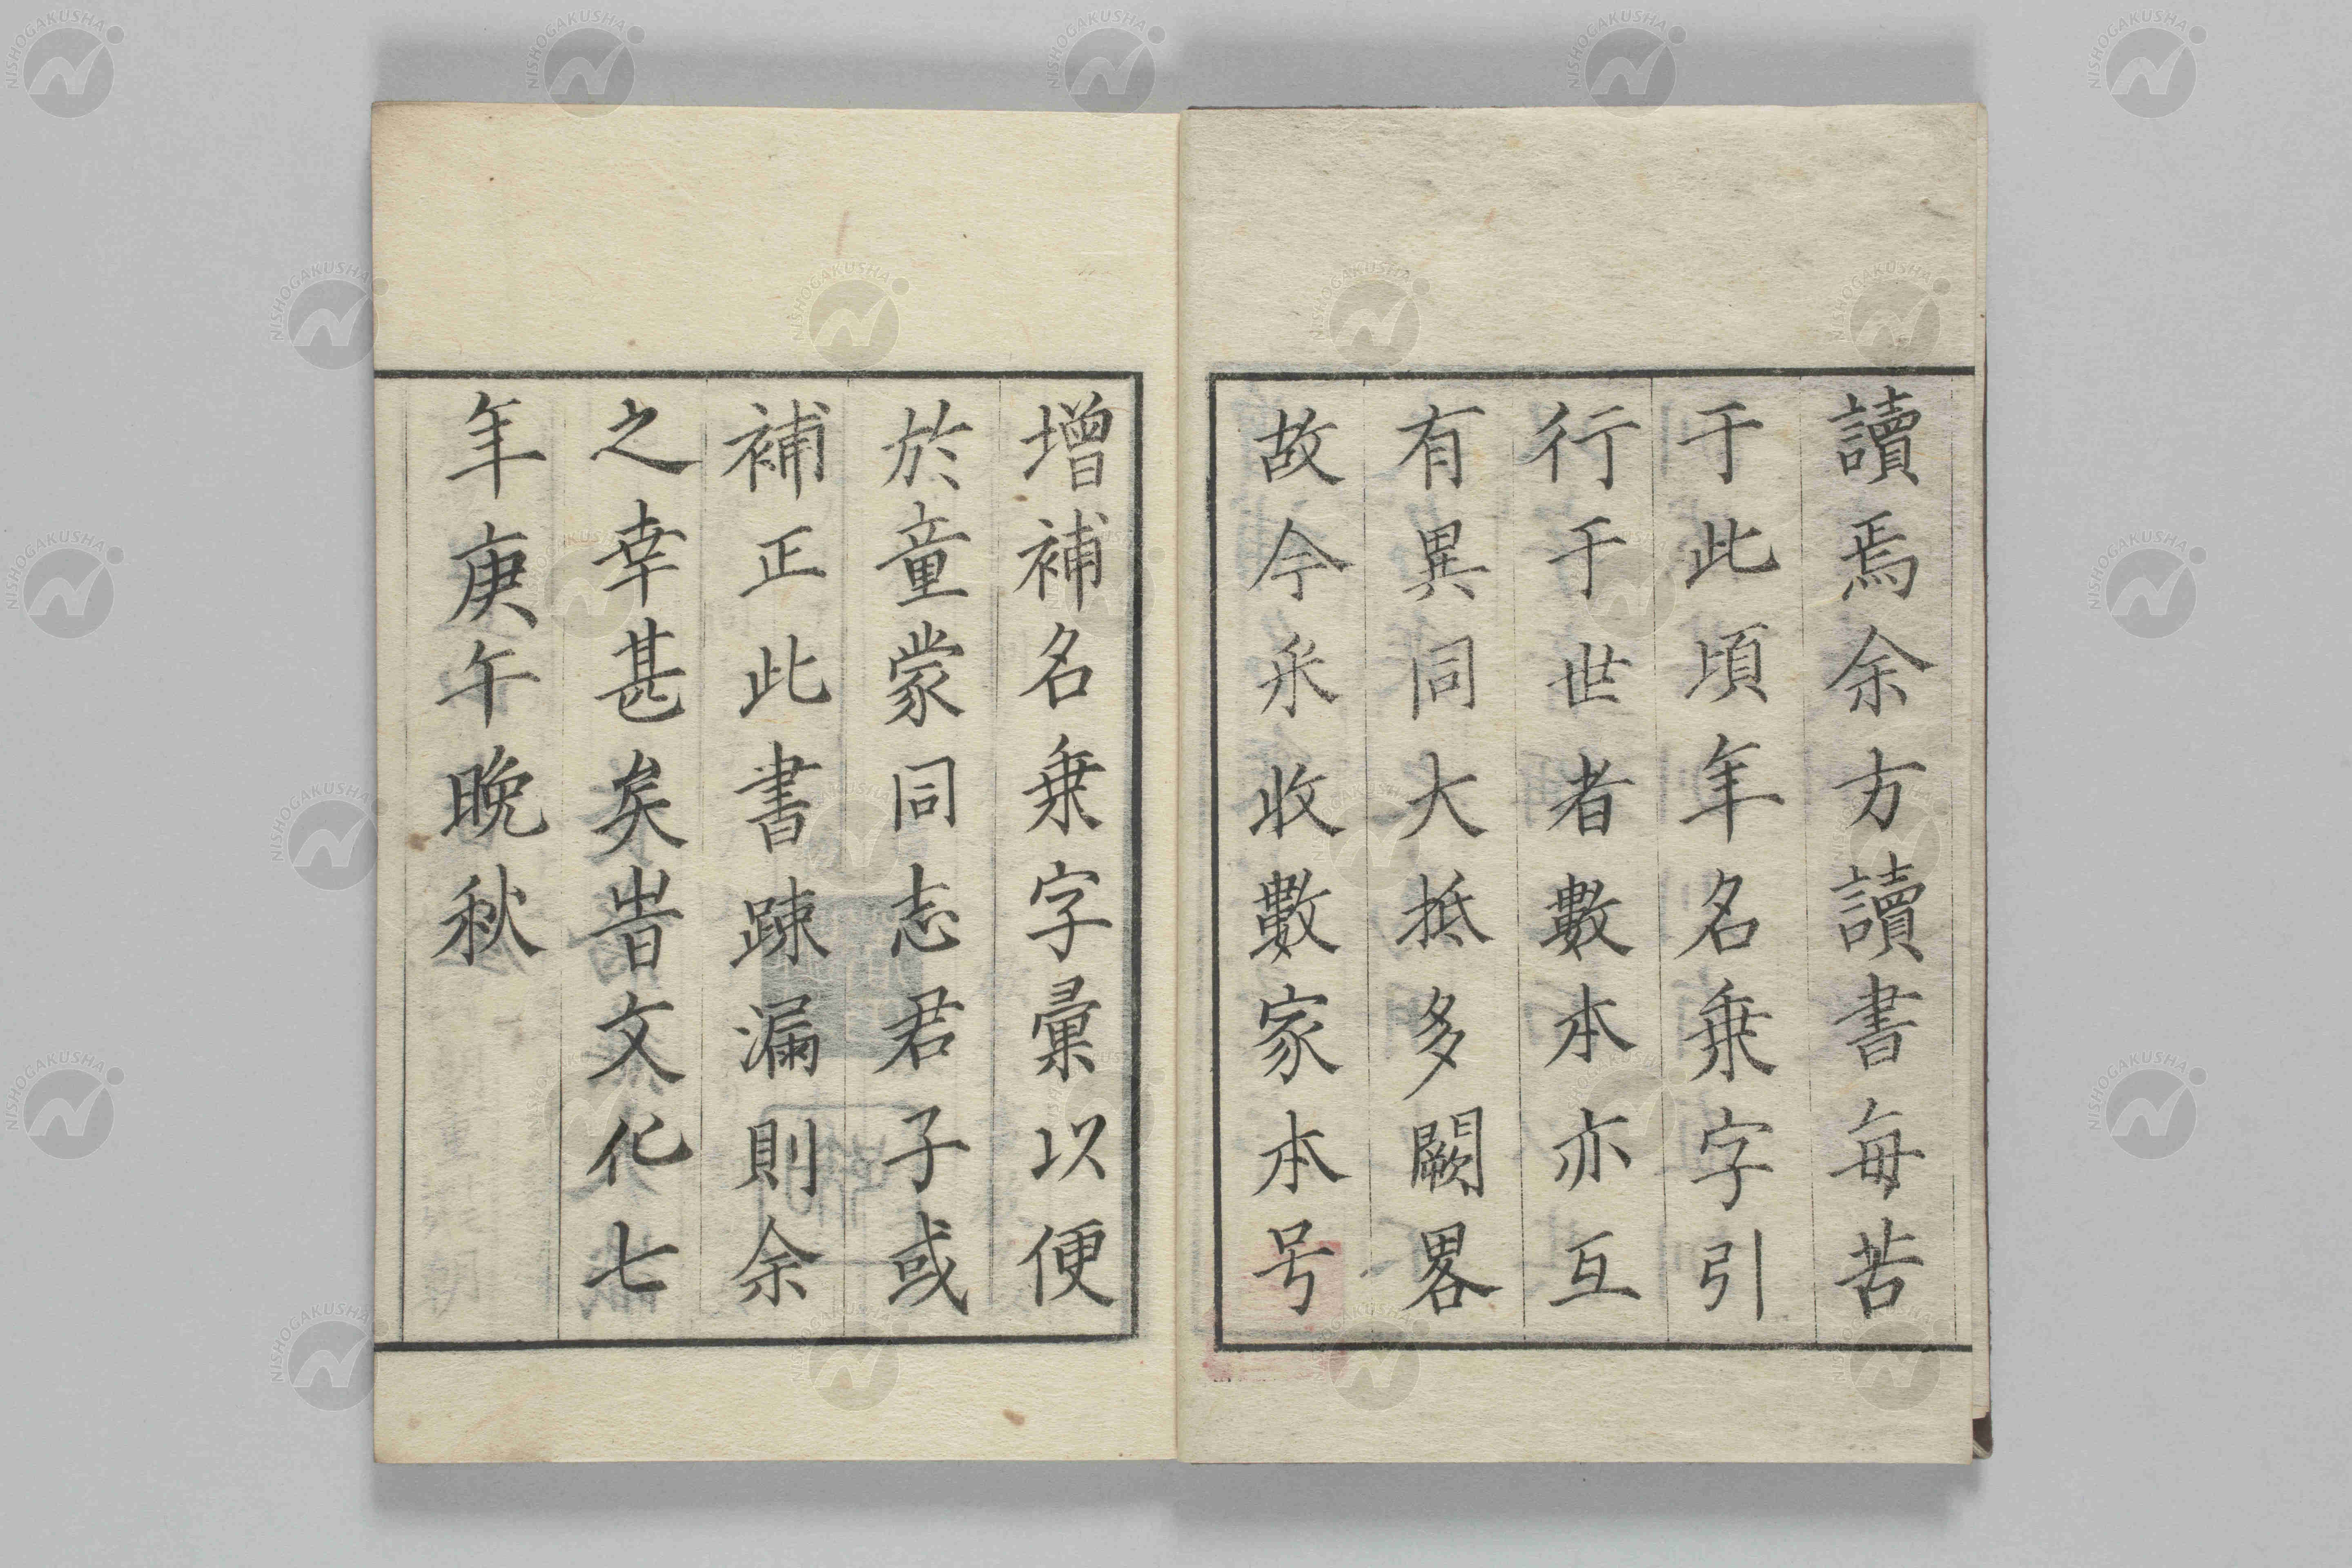 讀焉余方讀書每苦
于此頃年名乗字引
行于世者數本亦互
有異同大抵多闕畧
故今采收數家本号
增補名乗字彙以便
於童蒙同志君子或
補正此書踈漏則余
之幸甚矣旹文化七
年庚午晩秋
NISHOGAKUSHA